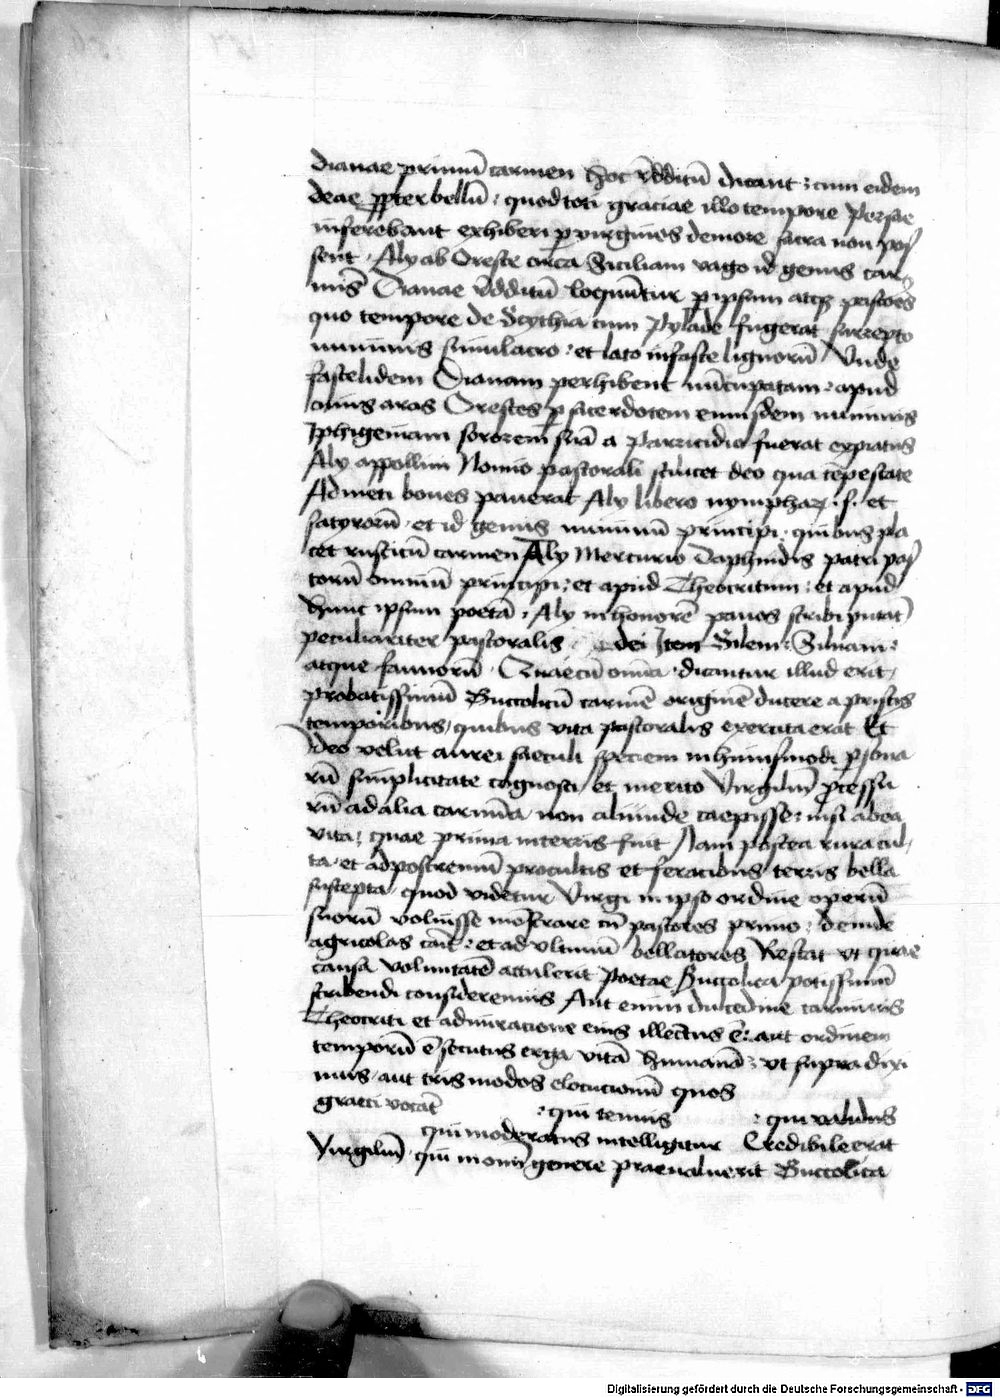 Dianae primū carmen hoc r̄dditū dicant : cum eidem
deae ꝓpter bellū : quod toti graciae illo tempore Persae
inferebant exhiberi ꝑ virgines de more sacra non pos
sent . Aly ab Oreste circa Siciliam vago id genus car
minis Dianae r̄dditū loquūtur ꝑ ipsum atqꝫ pastores
quo tempore de Scythia cum Pylade fugerat surrepto
numinis simulacro : et lato in faste lignorū Unde
fastelidem Dianam perhibent nūcupatam : apud
cuius aras Orestes ꝑ sacerdotem eiusdem numinis
Iphigeniam sororem suā a parricidio fuerat expiatus
Aly appollini Nomio pastorali scilicet deo qua tēpestate
Admeti boues pauerat Aly libero nymphaꝝ . s . et
satyrorū . et id genus numinū principi : quibus pla
cet rusticū carmen Aly Mercurio Daphnidis patri pas
torū omniū principi : et apud Theocritum : et apud
hunc ipsum poetā . Aly in honorē panos scribi putāt
peculiariter pastoralis dei Item Sileni : Siluani :
atque faunorū . Quae cū omīa dicantur illud erit
probatissimū Buccolicū carmē originē ducere a priscis
temporibus / quibus vita pastoralis exercita erat Et
Ideo velut aurei saeculi speciem in huiusmodi ꝑsona
rū simplicitate cognosci / et merito Virgiliū ꝓcessu
rū ad alia carmina non aliunde caepisse : nisi ab ea
vita : quae prima in terris fuit Nam postea rura cul
ta et ad postremū pro cultis et feracibus terris bella
suscepta / quod videtur Virgi in ipso ordine operū
suorū voluisse mostrare cū pastores primo : deinde
agricolas canit : et ad vltimū bellatores Restat vt quae
causa voluntatē attulerit Poetae Buccolica potissimū
scribendi consideremus Aut enim dulcedine carminis
Theocriti et admiracione eius illectus ē : aut ordinem
temporū ē secutus erga vitā humanā : vt supra dixi
mus / aut tris modos elocutionū quos
graeci vocāt : qui tenuis : qui validus
qui moderatus intelligitur Credibile erat
Virgiliū qui in omī genere praeualuerit Buccolica
Digitalisierung gefördert durch die Deutsche Forschungsgemeinschaft - DFG